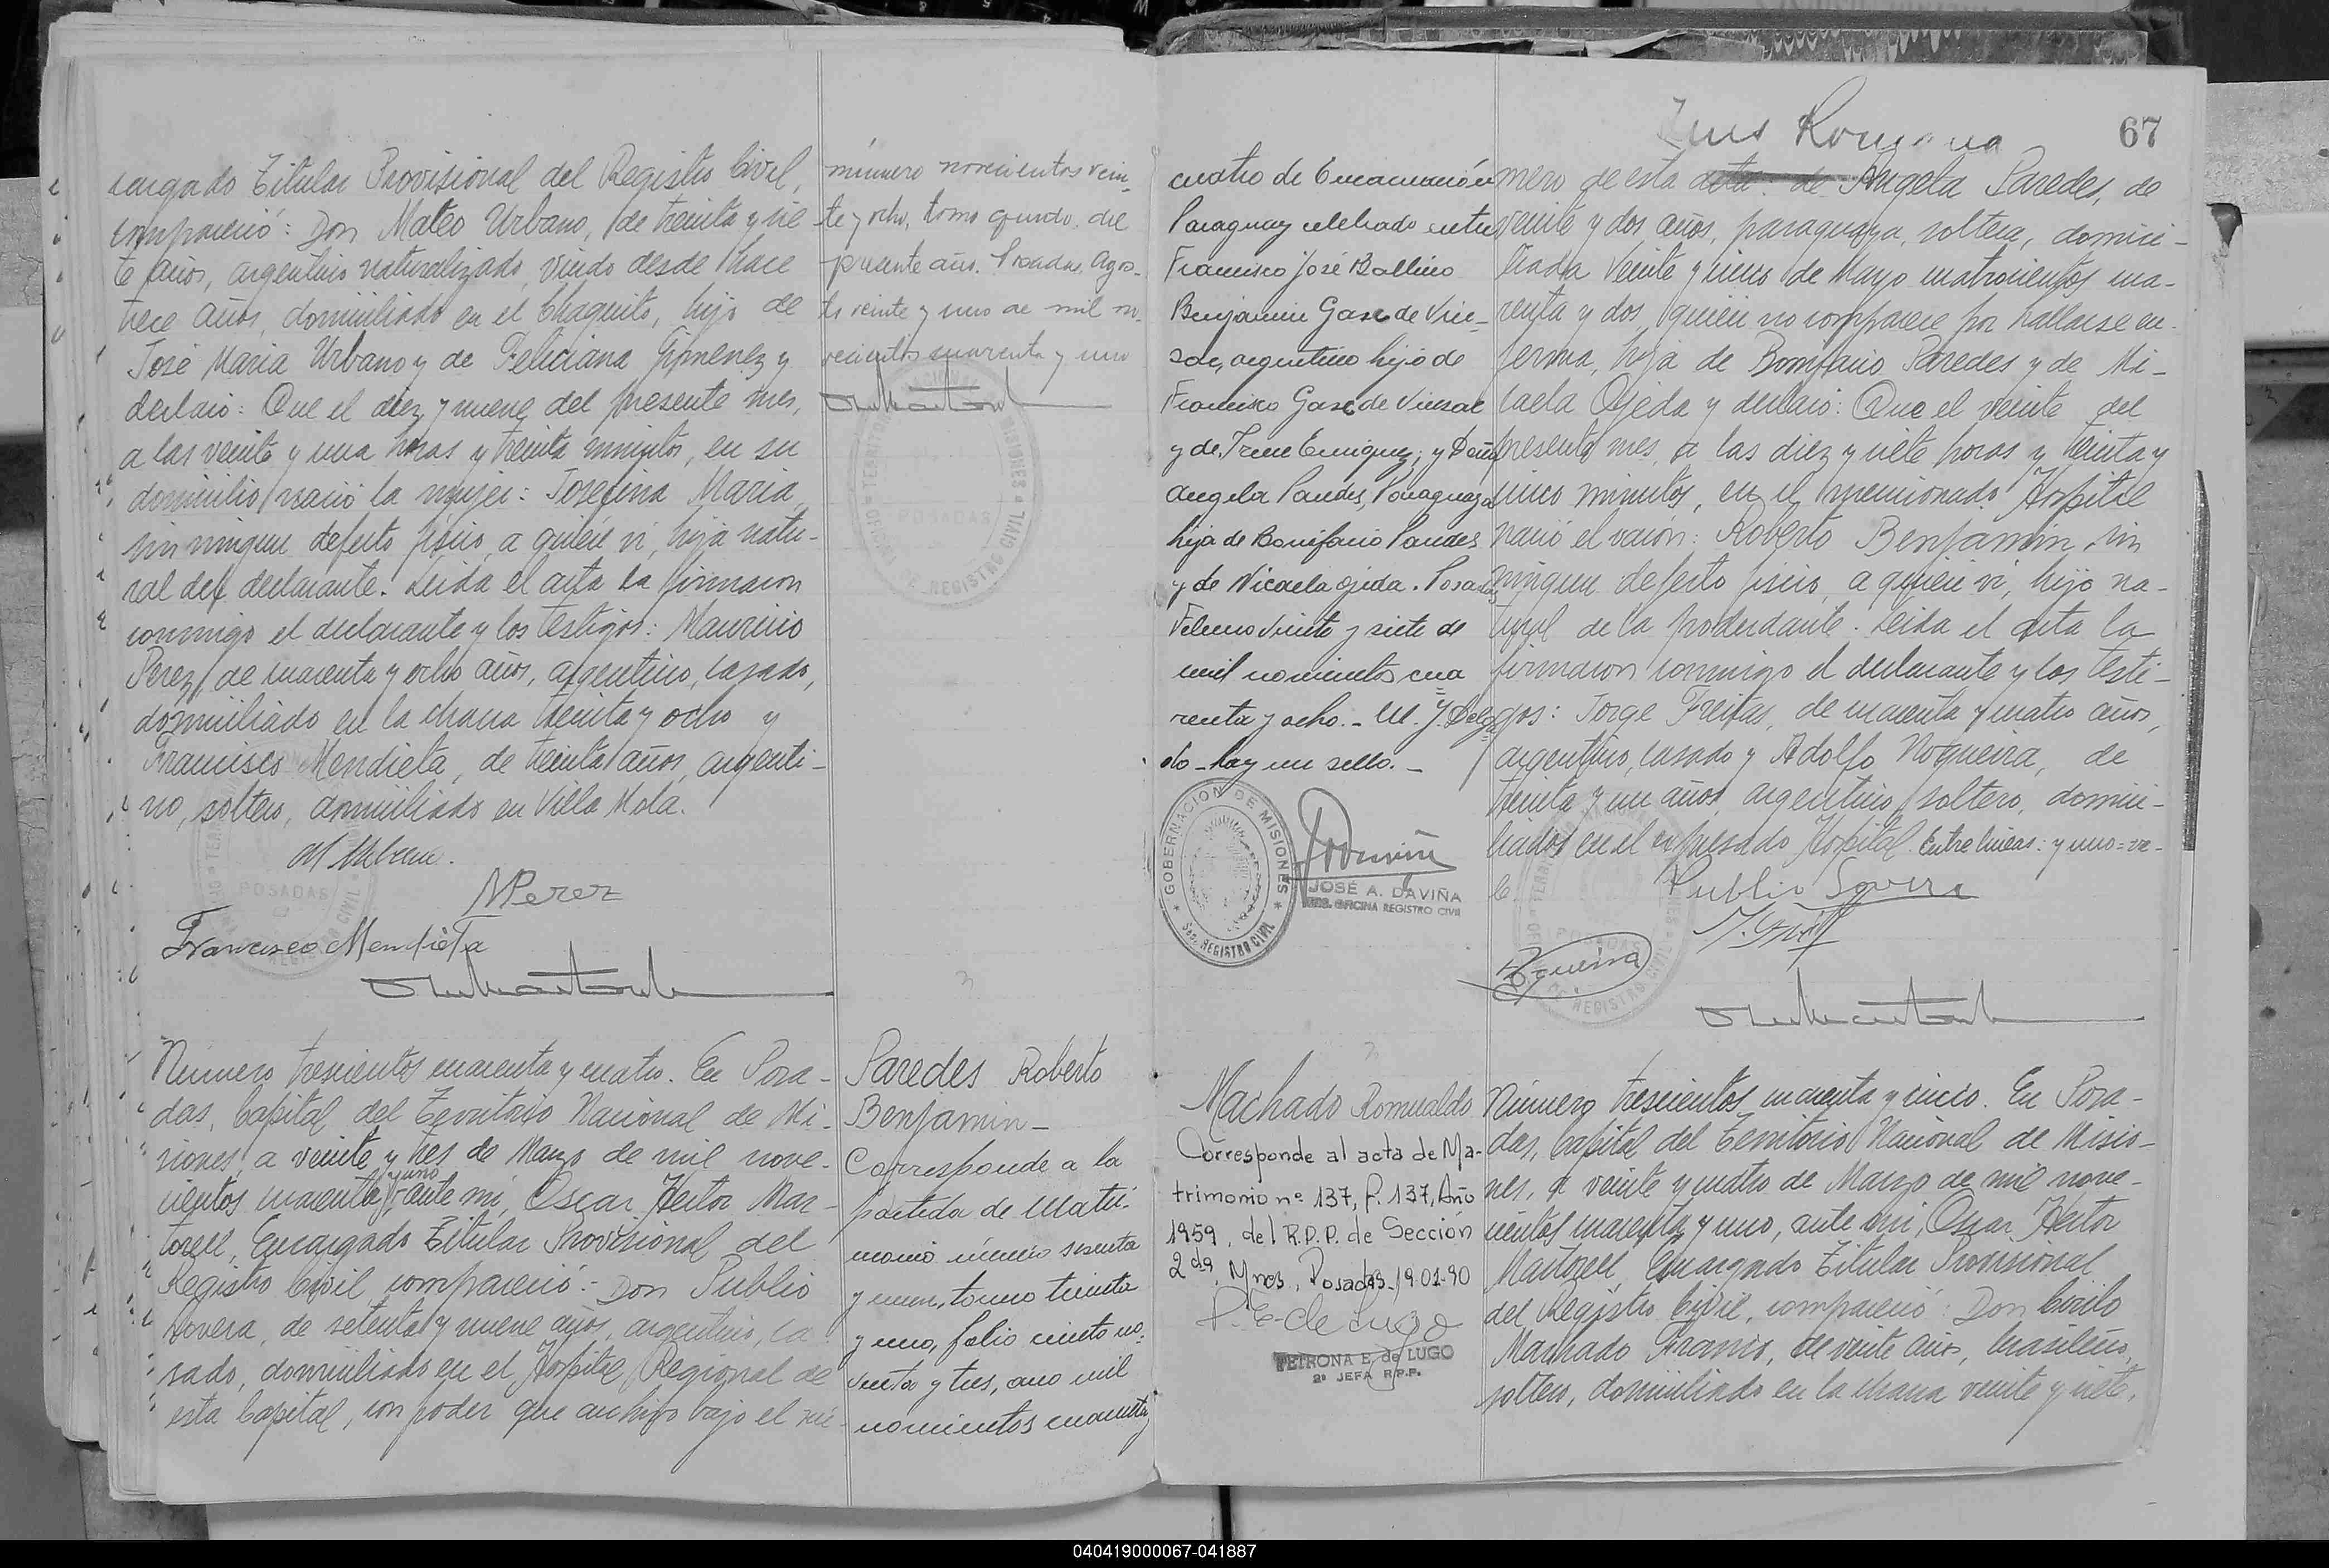 cargado Titular Provisional del Registro Civil,
compareció: Don Mateo Urbano, de treinta y sie
te años, argentino naturalizado, viudo desde hace
trece años, domiciliado en el Chaquito, hijo de
José Maria Urbano y de Feliciana Gimenez y
declaró: Que el diez y nueve del presente mes,
a las veinte y una horas y treinta minutos, en su
domicilio nació la mujer: Josefina Maria,
sin ningun defecto físico, a quien vi, hija natu-
ral del declarante. Leida el acta la firmaron
conmigo el declarante y los testigos: Mauricio
Perez, de cuarenta y ocho años, argentino, casado,
domiciliado en la chacra treinta y ocho y
Francisco Mendieta, de treinta años, argenti-
no, soltero, domiciliado en Villa Mola.
M Urbano.
MPerez
Francisco Mendieta
número novecientos vein-
te y ocho, tomo segundo del
presente año. Posadas, Agos-
to veinte y uno de mil no-
vecientos cuarenta y uno
POSADAS
OFICINA DE REGISTRO CIVIL
Número trescientos cuarenta y cuatro. En Posa-
das, Capital del Territorio Nacional de Mi-
siones, a veinte y tres de Marzo de mil nove-
y uno
cientos cuarenta, ante mi, Oscar Hector Mar-
torell, Encargado Titular Provisional del
Registro Civil, compareció:- Don Publio
Lovera, de setenta y nueve años, argentino, ca
sado, domiciliado en el Hospital Regional de
esta Capital, con poder que archivo bajo el nú-
Paredes Roberto
Benjamin-
Corresponde a la
partida de Matri-
monio número sesenta
y nueve, tomo treinta
y uno, folio ciento no-
venta y tres, año mil
novecientos cuarenta y
67
cuatro de Encarnación
Paraguay celebrado entre
Francisco José Ballino
Benjamin Gase de Vin-
sac, argentino hijo de
Francisco Gase de Vinsac
y de Irene Enriquez; y Doña
Angela Paredes, Paraguaya
hija de Bonifacio Paredes
y de Nicaela Ojeda. Posadas
Febrero veinte y siete de
mil novecientos cua
renta y ocho.- M. J. Delga
do - hay un sello.-
GOBERNACION DE MISIONES
Sec. REGISTRO CIVIL
JOSÉ A. DAVIÑA
OFICINA REGISTRO CIVIL
mero de esta acta de Angela Paredes, de
veinte y dos años, paraguaya, soltera, domici-
liada Veinte y cinco de Mayo cuatrocientos cua-
renta y dos, quien no comparece por hallarse en-
ferma, hija de Bonifacio Paredes y de Mi-
caela Ojeda y declaró: Que el veinte del
presente mes, a las diez y siete horas y treinta y
cinco minutos, en el mencionado Hospital
nació el varón: Roberto Benjamin, sin
ningun defecto físico, a quien vi, hijo na-
tural de la poderdante. Leida el acta la
firmaron conmigo el declarante y los testi-
gos: Jorge Freitas, de cuarenta y cuatro años,
argentino, casado y Adolfo Noqueira, de
treinta y un años, argentino, soltero, domici-
liados en el expresado Hospital. Entre lineas: y uno=va-
le.
Publio Lovera
Machado Romualdo
Corresponde al acta de Ma-
trimonio nº 137, f. 137, Año
1959, del R.P.P. de Sección
2da, Mnes, Posadas 19-01-90
P. E. de Lugo
PETRONA E. de LUGO
2º JEFA R.P.P.
Número trescientos cuarenta y cinco. En Posa-
das, Capital del Territorio Nacional de Misio-
nes, a veinte y cuatro de Marzo de mil nove-
cientos cuarenta y uno, ante mi, Oscar Hector
Martorell, Encargado Titular Provisional
del Registro Civil, compareció: Don Cirilo
Machado Franco, de veinte años, brasileño,
soltero, domiciliado en la chacra veinte y siete,
040419000067-041887